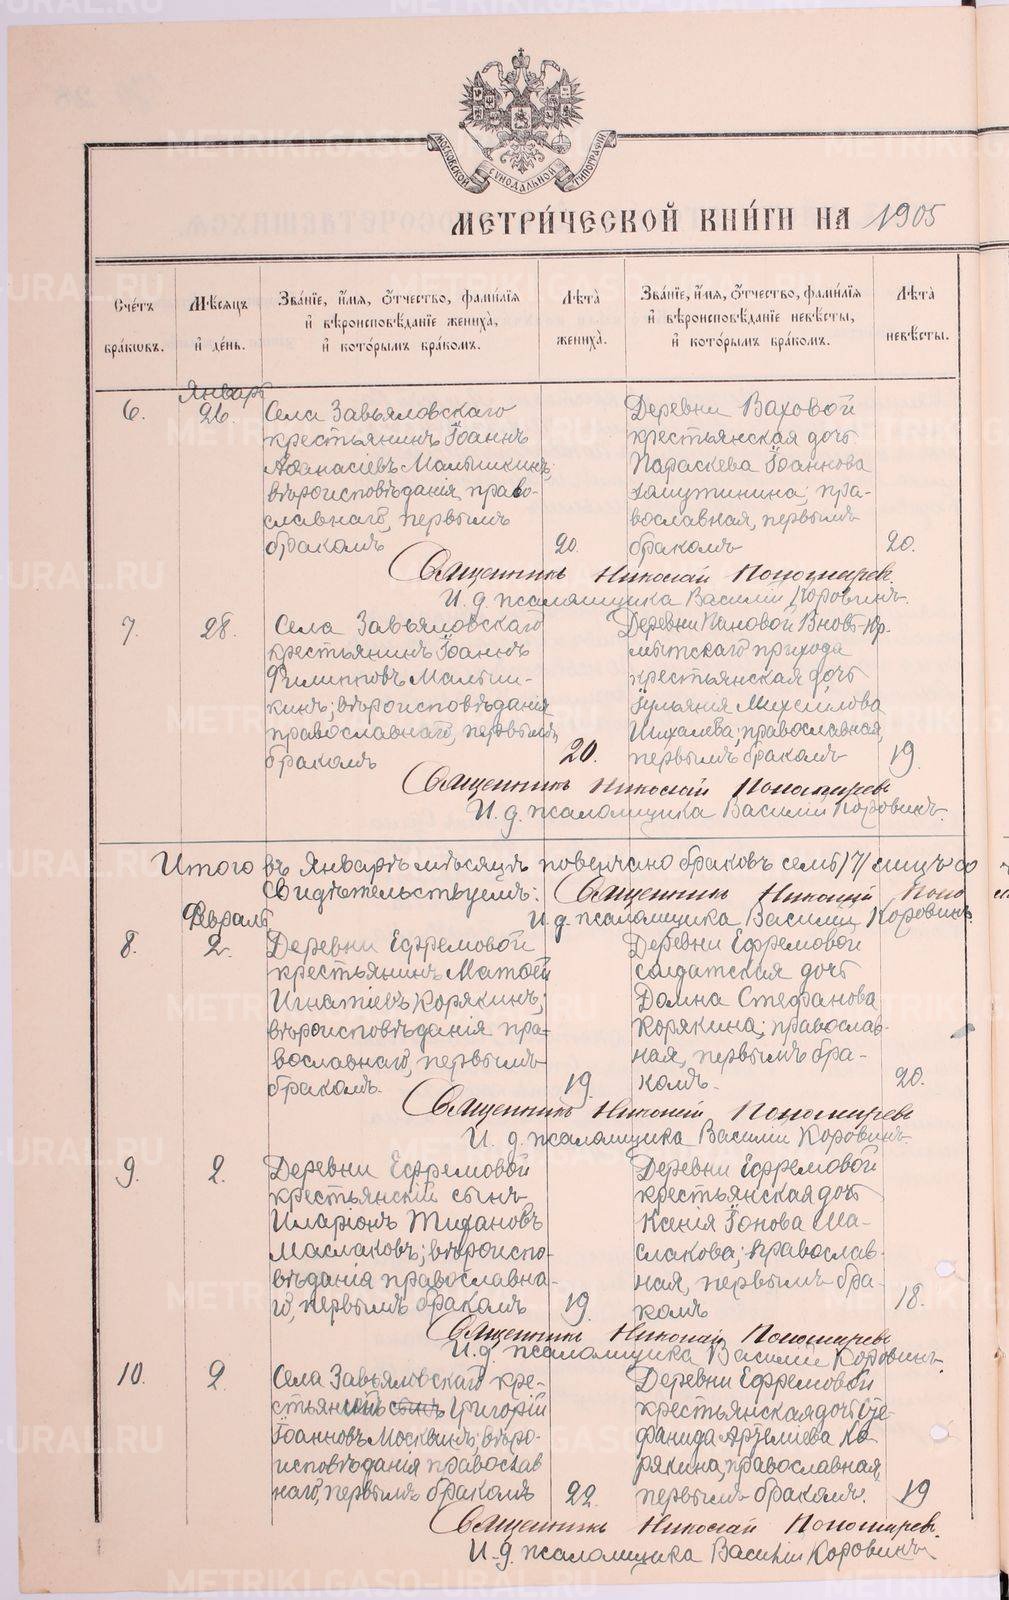 МОСКОВСКОЙ СУНОДАЛЬНОЙ ТИПОГРАФІИ
МЕТРИ́ЧЕСКОЙ КНИ́ГИ НА 1905
Сче́тъ бра́кωвъ.
Мѣ́сяцъ и҆ де́нь.
Зва́нїе, и҆́мя, ѻ҆́тчество, фами́лїя
и҆ вѣроисповѣ́данїе жениха̀,
и҆ кото́рымъ бра́комъ.
Лѣ́та жениха̀.
Зва́нїе, и҆́мя, ѻ҆́тчество, фами́лїя
и҆ вѣроисповѣ́данїе невѣ́сты,
и҆ кото́рымъ бра́комъ.
Лѣ́та невѣ́сты.
Январь
6.
26.
Села Завьяловскаго
крестьянинъ Іоаннъ
Аѳанасіевъ Малышкинъ,
вѣроисповѣданія право-
славнаго, первымъ
бракомъ
20.
Деревни Ваховой
крестьянская дочь
Параскева Іоаннова
Хомутинина; пра-
вославная, первымъ
бракомъ
20.
Священникъ Николай Пономаревъ.
И. д. псаломщика Василій Коровинъ.
7.
28.
Села Завьяловскаго
крестьянинъ Іоаннъ
Филипповъ Малыш-
кинъ; вѣроисповѣданія
православнаго, первымъ
бракомъ
20.
Деревни Пановой Вновь-Юр-
мытскаго прихода
крестьянская дочь
Іуліанія Михайлова
Михалева; православная,
первымъ бракомъ
19.
Священникъ Николай Пономаревъ
И. д. псаломщика Василій Коровинъ.
Итого въ Январѣ мѣсяцѣ повѣнчано браковъ семь /7/ сицъ
Свидѣтельствуемъ: Священникъ Николай Поно
И. д. псаломщика Василій Коровинъ.
Февраль
8.
2.
Деревни Ефремовой
крестьянинъ Матѳей
Игнатіевъ Корякинъ;
вѣроисповѣданія пра-
вославнаго, первымъ
бракомъ.
19.
Деревни Ефремовой
солдатская дочь
Домна Стефанова
Корякина; православ-
ная, первымъ бра-
комъ.
20.
Священникъ Николай Пономаревъ
И. д. псаломщика Василій Коровинъ
9.
2.
Деревни Ефремовой
крестьянскій сынъ
Иларіонъ Тихановъ
Маслаковъ; вѣроиспо-
вѣданія православна-
го, первымъ бракомъ
19.
Деревни Ефремовой
крестьянская дочь
Ксенія Іонова Ма-
слакова; православ-
ная, первымъ бра-
комъ
18.
Священникъ Николай Пономаревъ
И. д. псаломщика Василій Коровинъ.
10.
2.
Села Завьяловскаго кре-
стьянскій сынъ Григорій
Іоанновъ Москвинъ; вѣро-
исповѣданія православ
наго, первымъ бракомъ
22.
Деревни Ефремовой
крестьянская дочь Сте-
фанида Артеміева Ко-
рякина, православная,
первымъ бракомъ.
19
Священникъ Николай Пономаревъ.
И. д. псаломщика Василій Коровинъ
METRIKI.GASO-URAL.RU